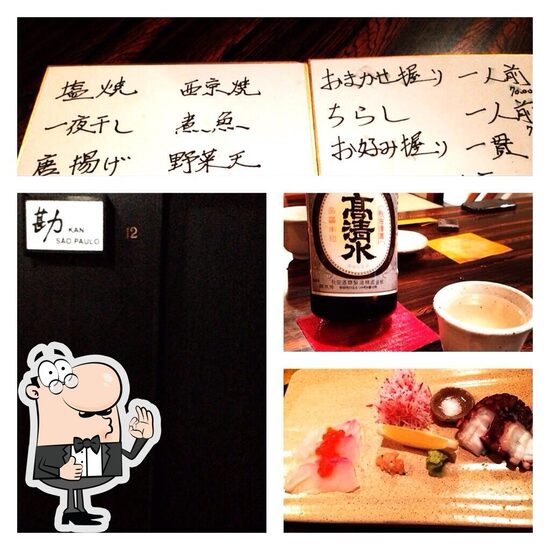 塩焼
西京焼
一夜干し
煮魚
唐揚げ
野菜天
おまかせ握り 一人前
ちらし 一人前
お好み握り 一貫
勘 KAN
SÃO PAULO
12
高清水